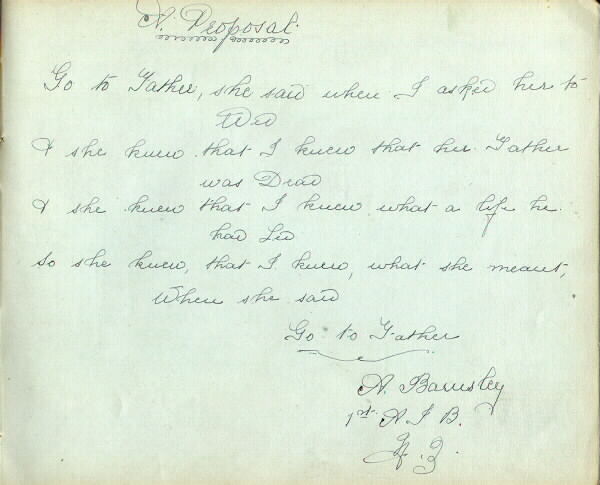 A. Proposal.
Go to Father, she said when I asked her to
Wed
& she knew that I knew that her Father
was Dead
& she knew that I knew what a life he
had Led
So she knew, that I knew, what she meant,
When she said
Go to Father
A. Barnsley
1st A I B.
N. Z.